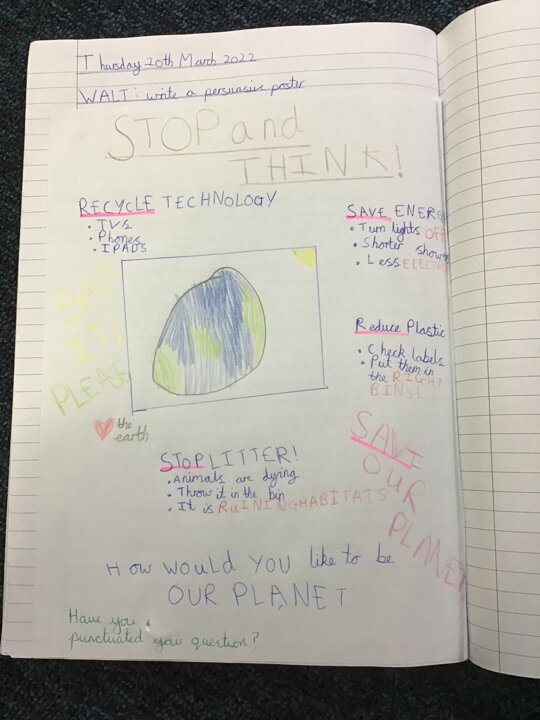 Thursday 10th March 2022
WALT: write a persuasive poster
STOP and
THINK!
RECYCLE TECHNOLOGY
• TVs
• Phones
• IPADS
SAVE ENERG
• Turn lights OFF
• Shorter show
• Less ELECT
PLEASE
Reduce Plastic
• Check labels
• Put them in
the RIGHT
BINS!
the
earth
SAVE
OUR
PLANET
STOP LITTER!
• Animals are dying
• Throw it in the bin
• It is RUINING HABITATS
How WOULD YOU like to be
OUR PLANET
Have you
punctuated your question?